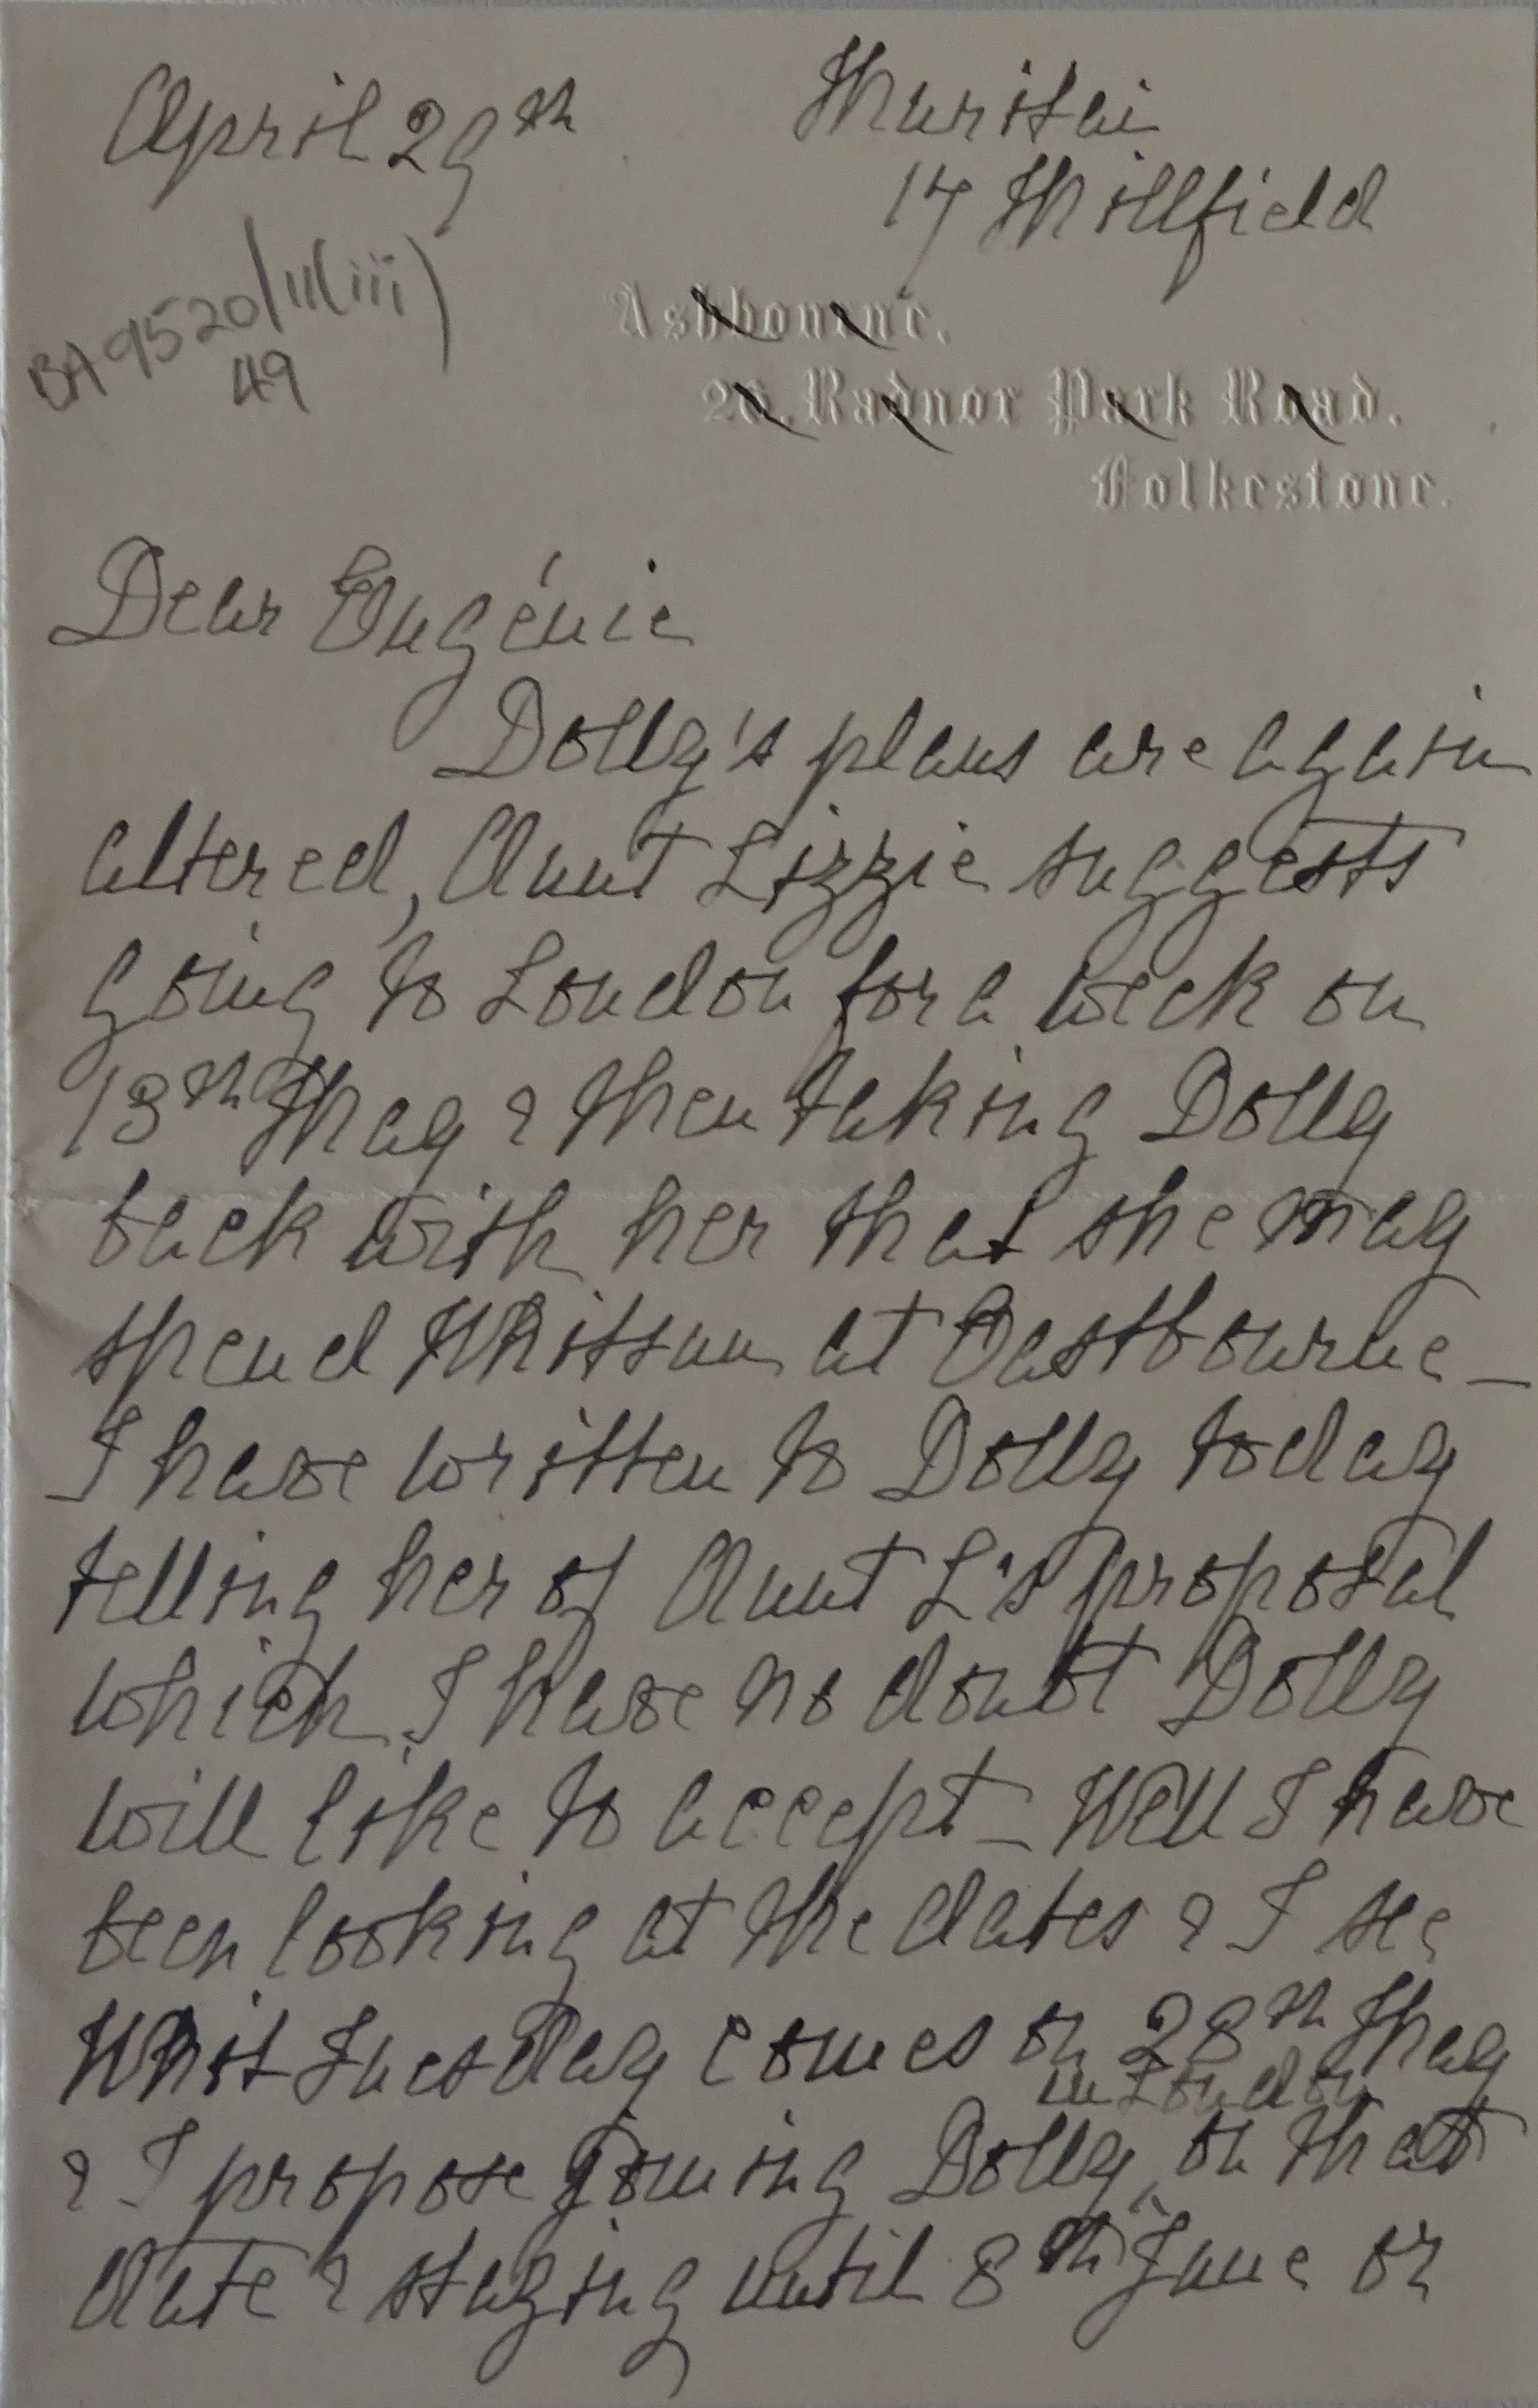 April 29th
17 Millfield
BA 9520/11(iii)
49
Ashbourne.
26, Radnor Park Road.
Folkestone.
Dear Eugénie
Dolly's plans are again
altered, Aunt Lizzie suggests
going to London for a week on
13th May & then taking Dolly
back with her that she may
spend Whitsun at Eastbourne _
I have written to Dolly today
telling her of Aunt L's proposal
which I have no doubt Dolly
will like to accept _ Well I have
been looking at the dates & I see
Whit Tuesday comes on 28th May
& I propose joining Dolly in London on that
date & staying until 8th June or